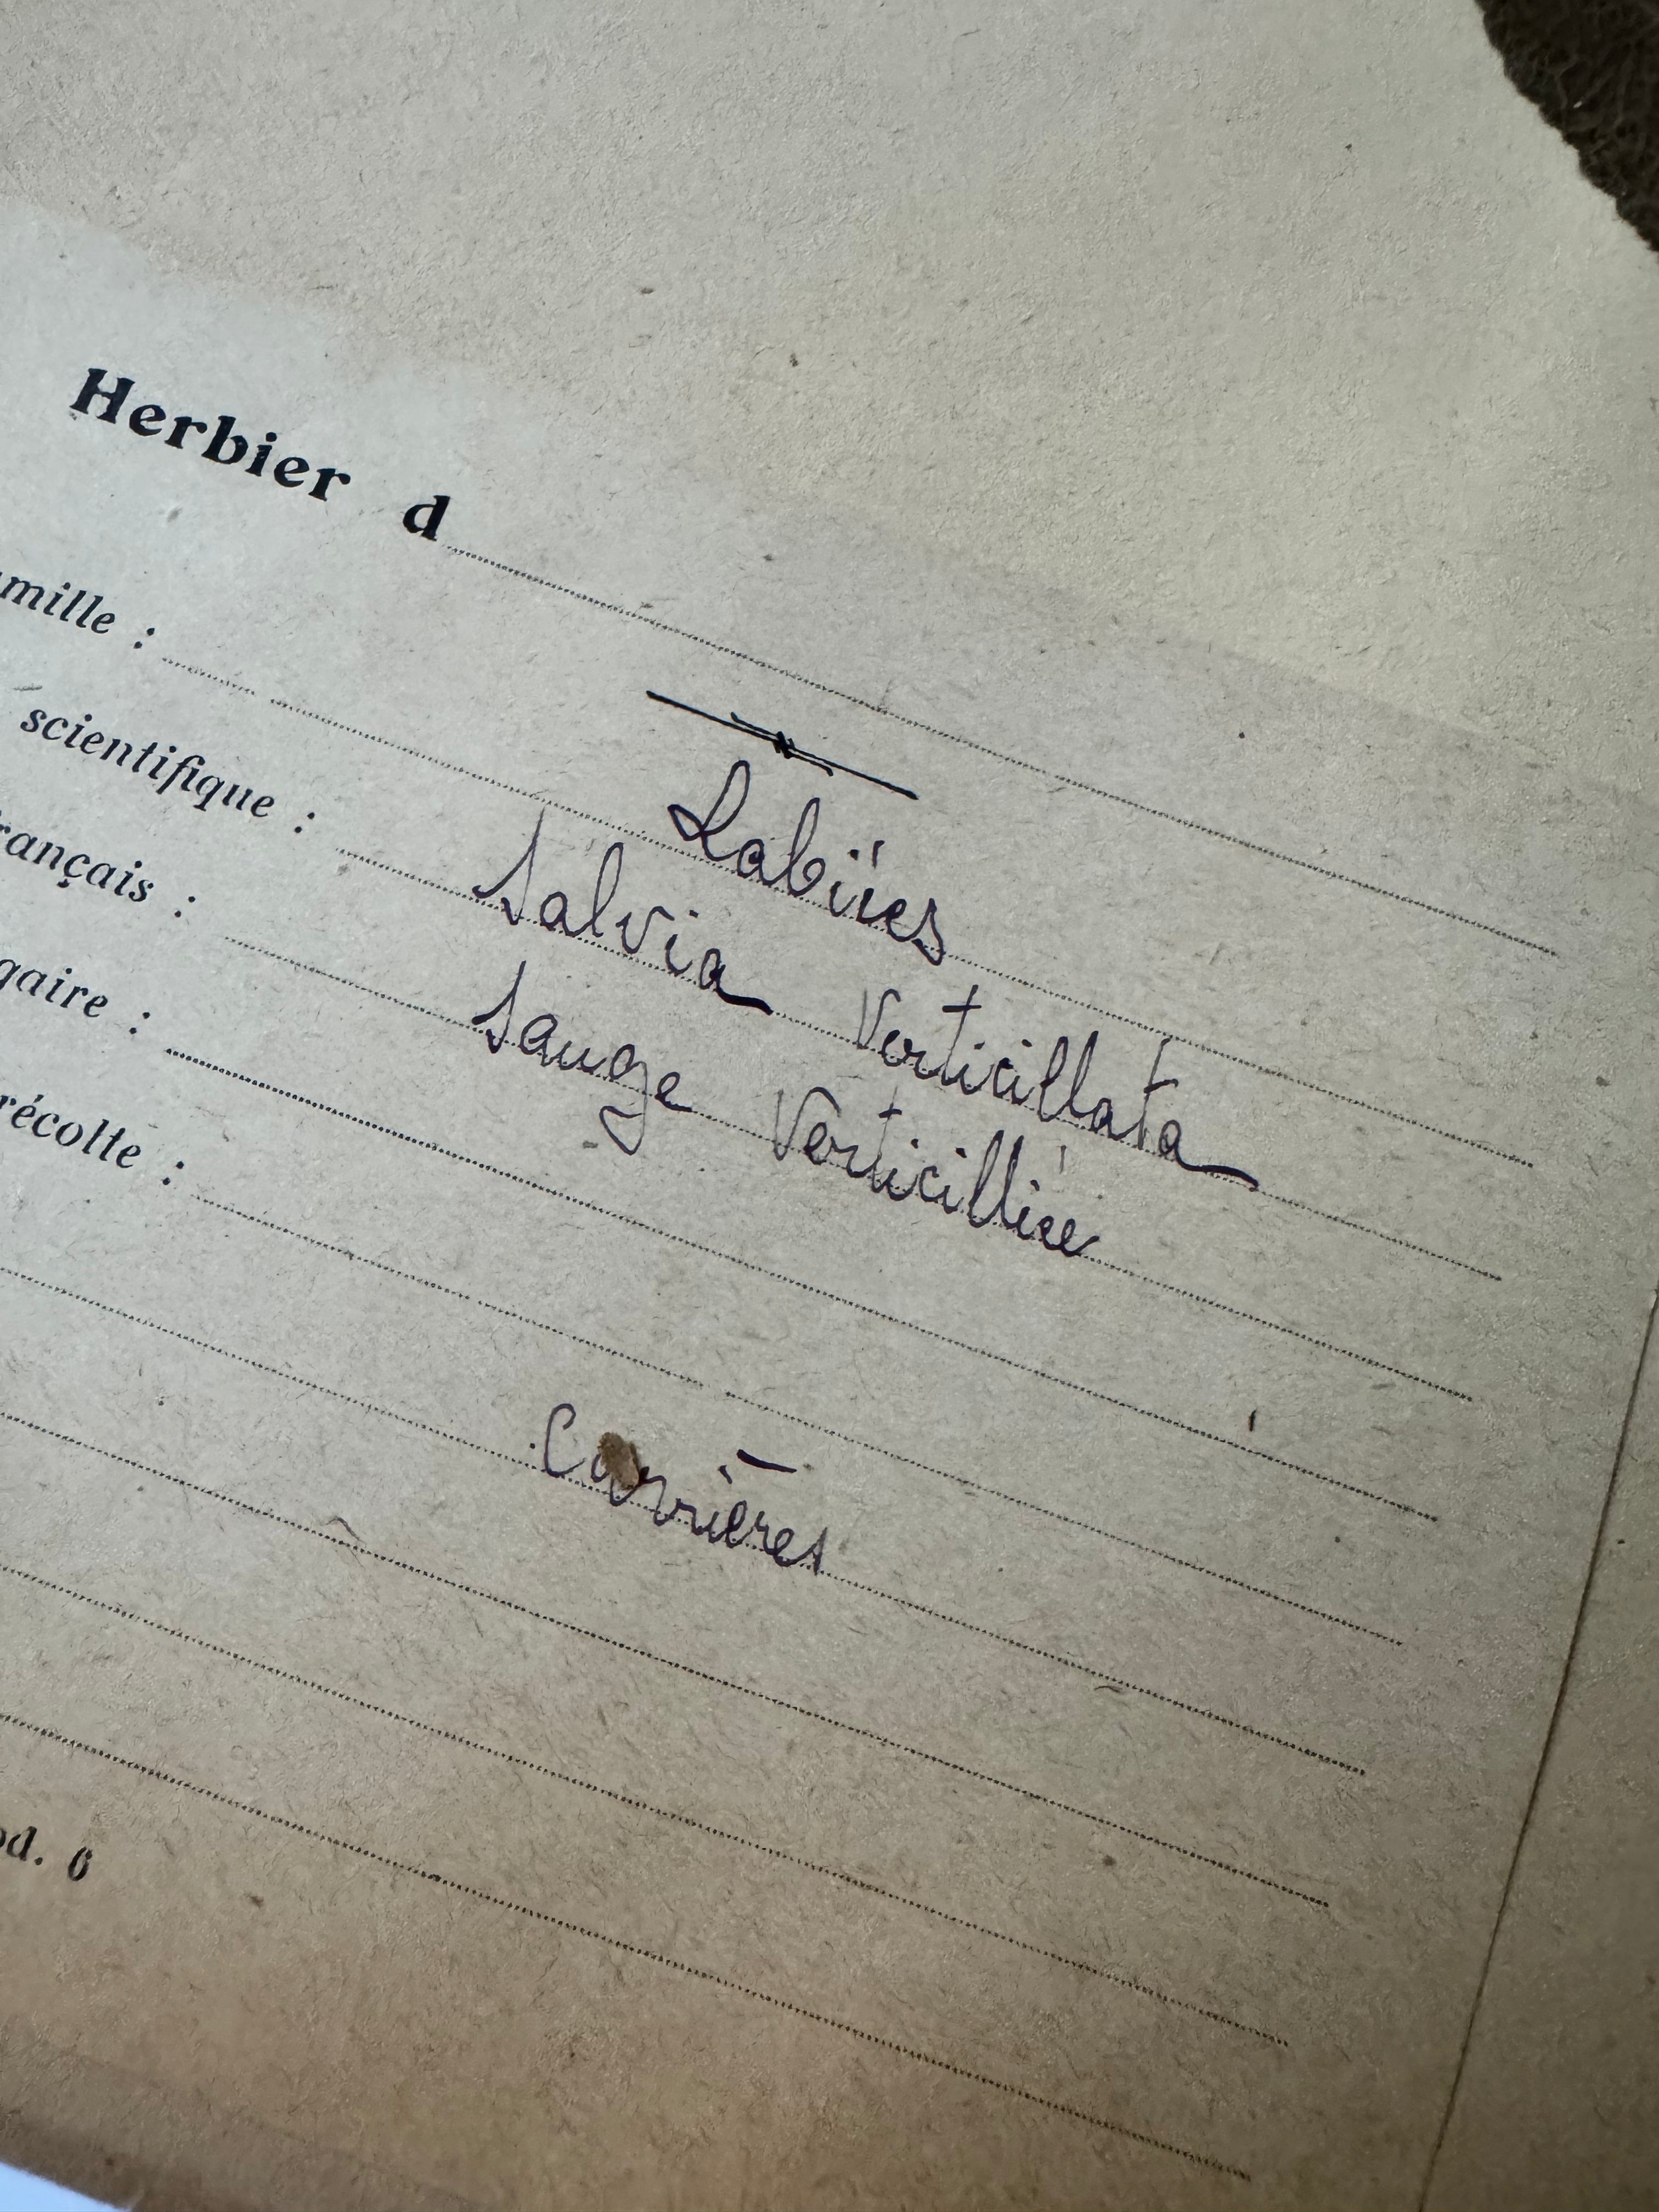 Herbier d
mille : Labiées
scientifique : Salvia Verticillata
rançais : Sauge Verticillée
gaire :
récolte :
Carrières
od. 6